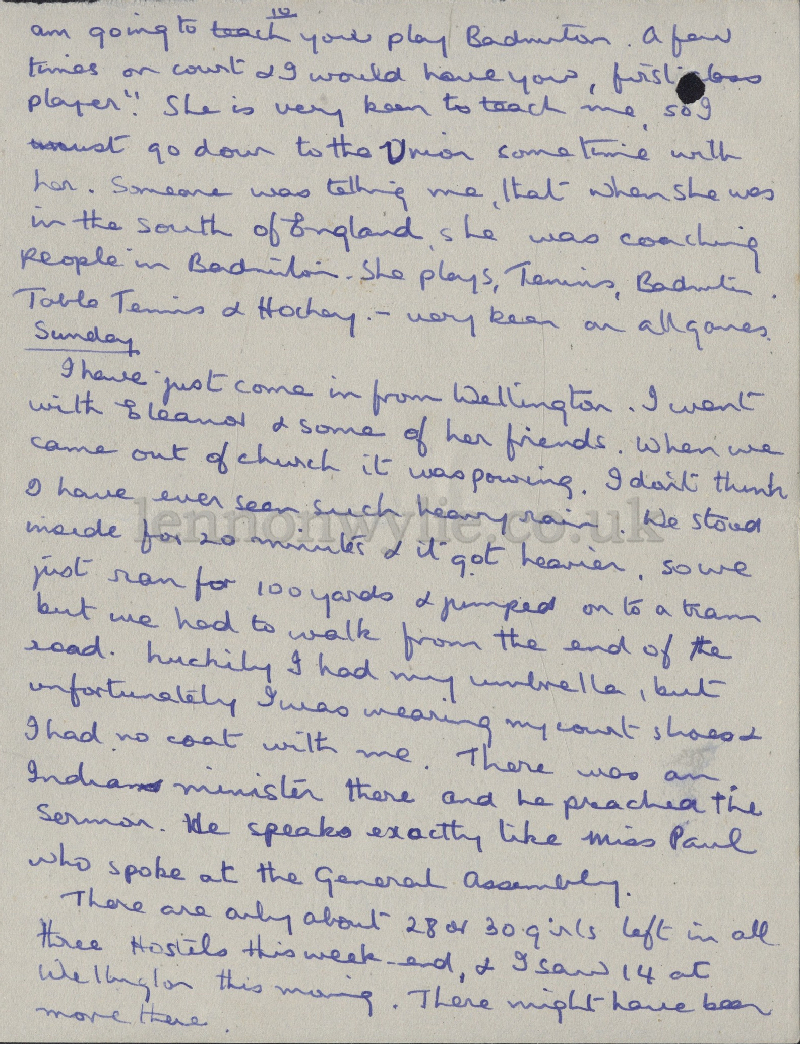 10
am going to teach you play Badminton. A few
times on court & I would have you, first class
player". She is very keen to teach me, so I
must go down to the Union sometime with
her. Someone was telling me, that when she was
in the South of England, she was coaching
people in Badminton. She plays, Tennis, Badmton.
Table Tennis & Hockey. - very keen on all games.
Sunday
I have just come in from Wellington. I went
with Eleanor & some of her friends. When we
came out of church it was pouring. I don't think
I have ever seen such heavy rain. We stood
inside for 20 minutes & it got heavier, so we
just ran for 100 yards & jumped on to a tram
but we had to walk from the end of the
road. Luckily I had my umbrella, but
unfortunately I was wearing my court shoes &
I had no coat with me. There was an
Indian minister there and he preached the
Sermon. He speaks exactly like Miss Paul
who spoke at the General Assembly.
There are only about 28 or 30 girls left in all
three Hostels this week-end, & I saw 14 at
Wellington this morning. There might have been
more there.
lennonwylie.co.uk